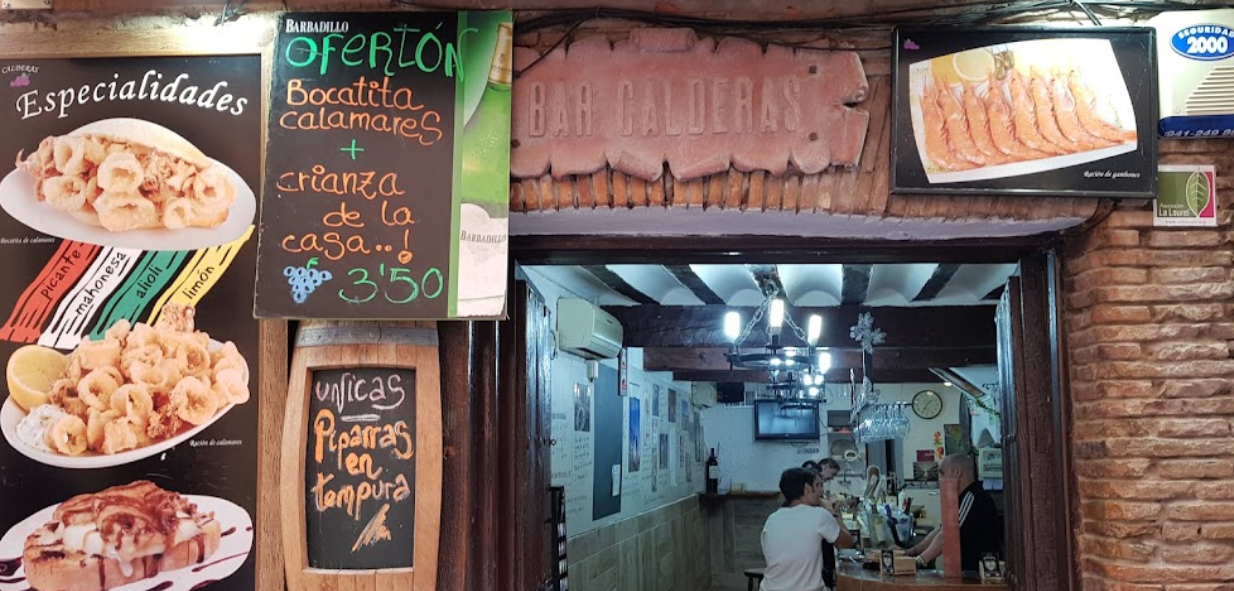 CALDERAS
Especialidades
Bocatita de calamares
picante
mahonesa
alioli
limón
Ración de calamares
BARBADILLO
OFERTÓN
Bocatita
calamares
+
crianza
de la
casa..!
3'50
BARBADILLO
UNICAS
Piparras
en
tempura
BAR CALDERAS
Ración de gambones
SEGURIDAD
2000
Asociación
La Laurel